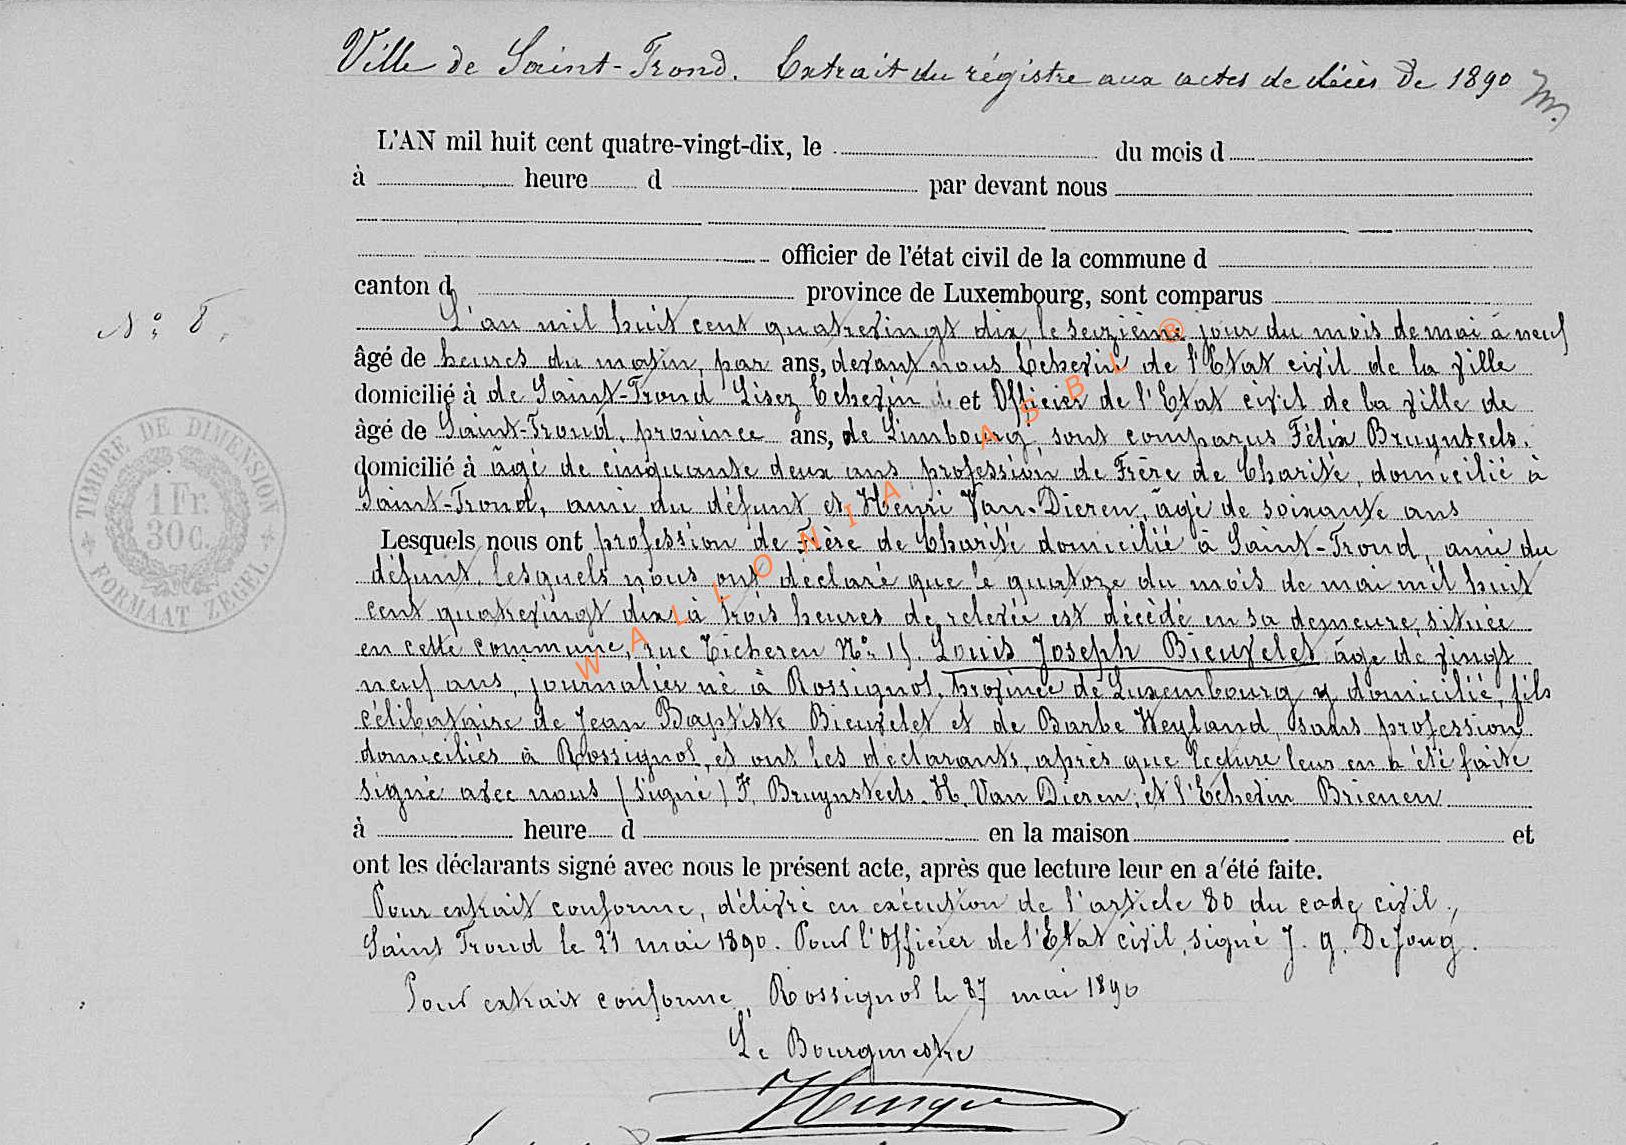 Ville de Saint-Trond. Extrait du régistre aux actes de décès de 1890
L'AN mil huit cent quatre-vingt-dix, le du mois d
à heure d par devant nous
officier de l'état civil de la commune d
canton d province de Luxembourg, sont comparus
N° 8.
L'an mil huit cent quatrevingt dix, le seizième jour du mois de mai à neuf
âgé de heures du matin, par ans, devant nous Echevin de l'Etat civil de la ville
domicilié à de Saint-Trond Lisez Echevin et Officier de l'Etat civil de la ville de
âgé de Saint-Trond, province ans, de Limbourg sont comparus Félix Bruynteels,
domicilié à âgé de cinquante deux ans profession de Frère de Charité, domicilié à
Saint-Trond, ami du défunt et Henri Van-Dieren, âgé de soixante ans
Lesquels nous ont profession de Frère de Charité domicilié à Saint-Trond, ami du
défunt, lesquels nous ont déclaré que le quatoze du mois de mai mil huit
cent quatrevingt dix à trois heures de relevée est décédé en sa demeure, située
en cette commune, rue Ticheren N° 15, Louis Joseph Bieuvelet âgé de vingt
neuf ans, journalier né à Rossignol, province de Luxembourg y domicilié, fils
célibataire de Jean Baptiste Bieuvelet et de Barbe Weyland, sans profession
domiciliés à Rossignol, et ont les déclarants, après que lecture leur en a été faite
signé avec nous (signé) F. Bruynsteels. H. Van Dieren, et l'Echevin Brienen
à heure d en la maison et
ont les déclarants signé avec nous le présent acte, après que lecture leur en a été faite.
Pour extrait conforme, délivré en exécution de l'article 80 du code civil,
Saint Trond le 21 mai 1890. Pour l'Officier de l'Etat civil, signé J. g. DeJong.
Pour extrait conforme, Rossignol le 27 mai 1890
Le Bourgmestre
TIMBRE DE DIMENSION
1 Fr.
30 C.
FORMAAT ZEGEL
WALLONIA ASBL ®